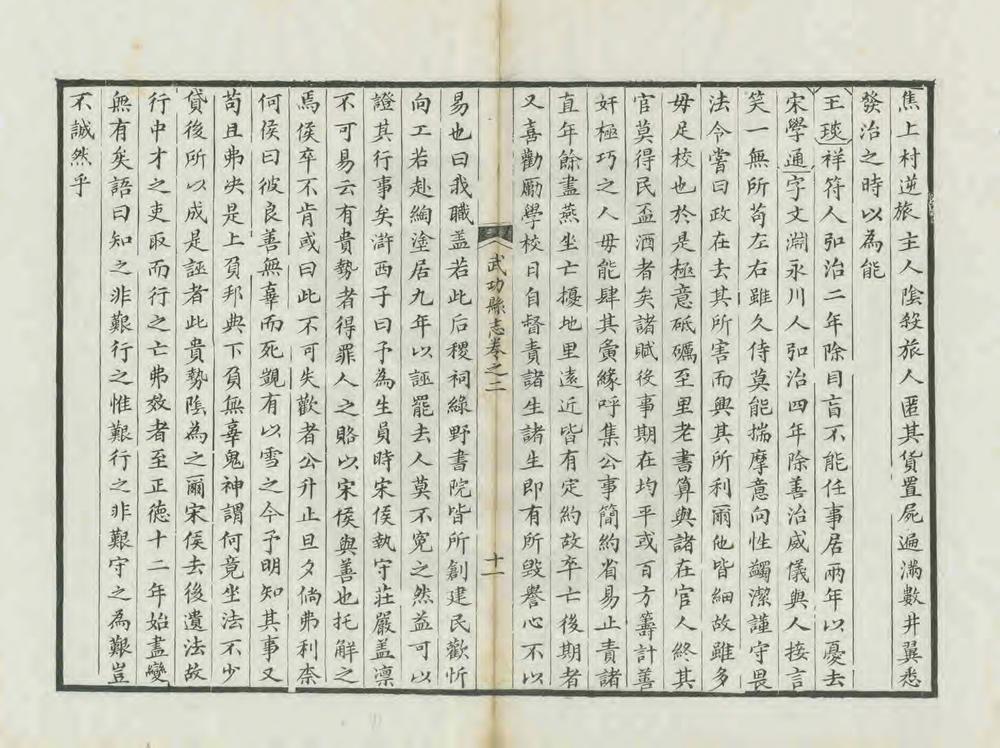 焦上村逆旅主人陰殺旅人匿其貨置屍遍滿數井翼悉
發治之時以為能
王琰祥符人弘治二年除目盲不能任事居兩年以憂去
宋學通字文淵永川人弘治四年除善治威儀與人接言
笑一無所苟左右雖久侍莫能揣摩意向性蠲潔謹守畏
法令嘗曰政在去其所害而興其所利爾他皆細故雖多
毋足校也於是極意砥礪至里老書算與諸在官人終其
官莫得民盃酒者矣諸賦役事期在均平或百方籌計善
奸極巧之人毋能肆其夤緣呼集公事簡約省易止責諸
直年餘盡燕坐亡擾地里遠近皆有定約故卒亡後期者
又喜勸勵學校日自督責諸生諸生即有所毀譽心不以
武功縣志卷之二
十一
易也曰我職盖若此后稷祠綠野書院皆所創建民歡忻
向工若赴綯塗居九年以誣罷去人莫不冤之然益可以
證其行事矣滸西子曰予為生員時宋侯執守莊嚴盖凛
不可易云有貴勢者得罪人之賂以宋侯與善也托解之
焉侯卒不肯或曰此不可失歡者公升止旦夕倘弗利柰
何侯曰彼良善無辜而死覬有以雪之今予明知其事又
苟且弗决是上負邦典下負無辜鬼神謂何竟坐法不少
貸後所以成是誣者此貴勢陰為之爾宋侯去後遺法故
行中才之吏取而行之亡弗效者至正德十二年始盡變
無有矣語曰知之非艱行之惟艱行之非艱守之為艱豈
不誠然乎